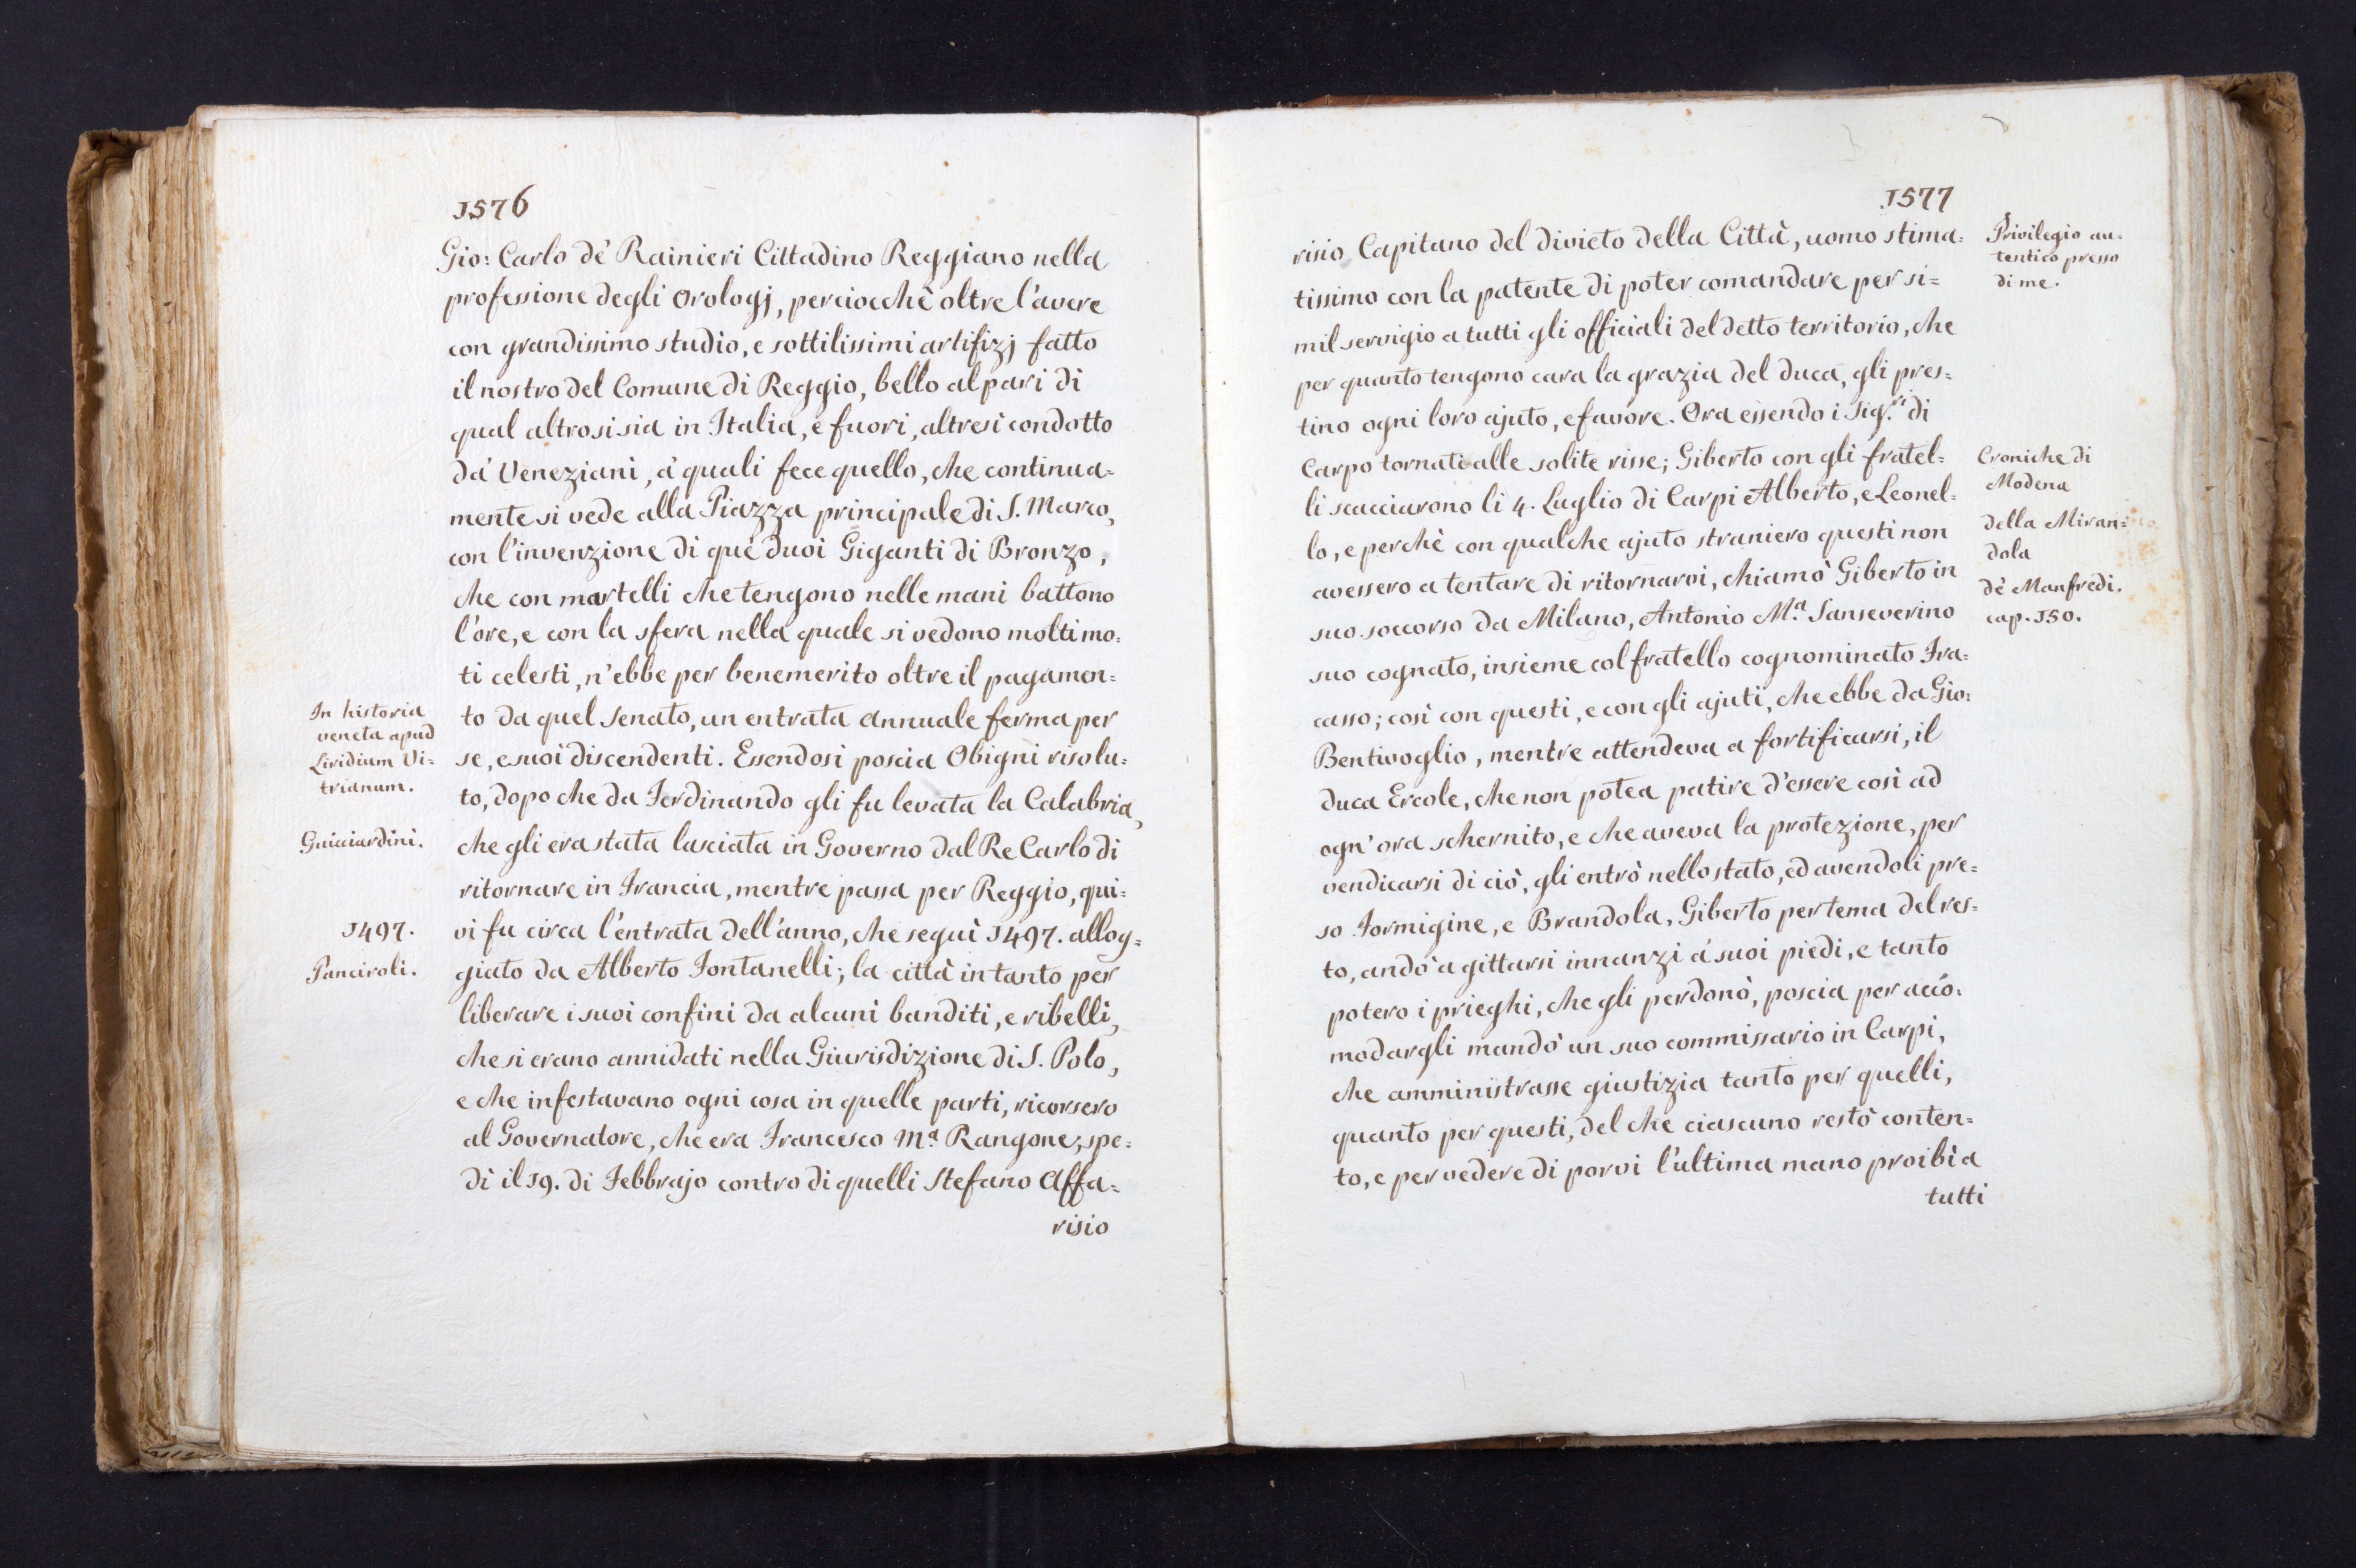 1576
Gio: Carlo dè Rainieri Cittadino Reggiano nella
professione degli Orologj, perciocchè oltre l'avere
con grandissimo studio, e sottilissimi artifizj fatto
il nostro del Comune di Reggio, bello al pari di
qual altro si sia in Italia, e fuori, altresì condotto
dà Veneziani, à quali fece quello, che continua=
mente si vede alla Piazza principale di S. Marco,
con l'invenzione di què duoi Giganti di Bronzo,
che con martelli che tengono nelle mani battono
l'ore, e con la sfera nella quale si vedono molti mo=
ti celesti, n'ebbe per benemerito oltre il pagamen=
In historia
veneta apud
Lividium Vi=
trianum.
to da quel Senato, un entrata annuale ferma per
se, e suoi discendenti. Essendosi poscia Obigni risolu=
to, dopo che da Ferdinando gli fu levata la Calabria,
Guicciardini.
che gli era stata lasciata in Governo dal Re Carlo di
ritornare in Francia, mentre passa per Reggio, qui=
1497.
vi fu circa l'entrata dell'anno, che seguì 1497. allog=
Panciroli.
giato da Alberto Fontanelli; la città in tanto per
liberare i suoi confini da alcuni banditi, e ribelli,
che si erano annidati nella Giurisdizione di S. Polo,
e che infestavano ogni cosa in quelle parti, ricorsero
al Governatore, che era Francesco M.a Rangone, spe=
dì il 19. di Febbrajo contro di quelli Stefano Affa=
risio
1577
risio Capitano del divieto della Città, uomo stima=
Privilegio au=
tentico presso
di me.
tissimo con la patente di poter comandare per si=
mil servigio a tutti gli officiali del detto territorio, che
per quanto tengono cara la grazia del Duca, gli pres=
tino ogni loro ajuto, e favore. Ora essendo i Sig.ri di
Carpo tornati alle solite risse; Giberto con gli fratel=
Croniche di
Modena
della Miran=
dola
dè Manfredi.
cap. 150.
li scacciarono li 4. Luglio di Carpi Alberto, e Leonel=
lo, e perchè con qualche ajuto straniero questi non
avessero a tentare di ritornarvi, chiamò Giberto in
suo soccorso da Milano, Antonio M.a Sanseverino
suo cognato, insieme col fratello cognominato Fra=
casso; così con questi, e con gli ajuti, che ebbe da Gio:
Bentivoglio, mentre attendeva a fortificarsi, il
Duca Ercole, che non potea patire d'essere così ad
ogn'ora schernito, e che aveva la protezione, per
vendicarsi di ciò, gli entrò nello stato, ed avendoli pre=
so Formigine, e Brandola, Giberto per tema del res=
to, andò a gittarsi innanzi à suoi piedi, e tanto
potero i prieghi, che gli perdonò, poscia per acco=
modargli mandò un suo commissario in Carpi,
che amministrasse giustizia tanto per quelli,
quanto per questi, del che ciascuno restò conten=
to, e per vedere di porvi l'ultima mano proibì a
tutti